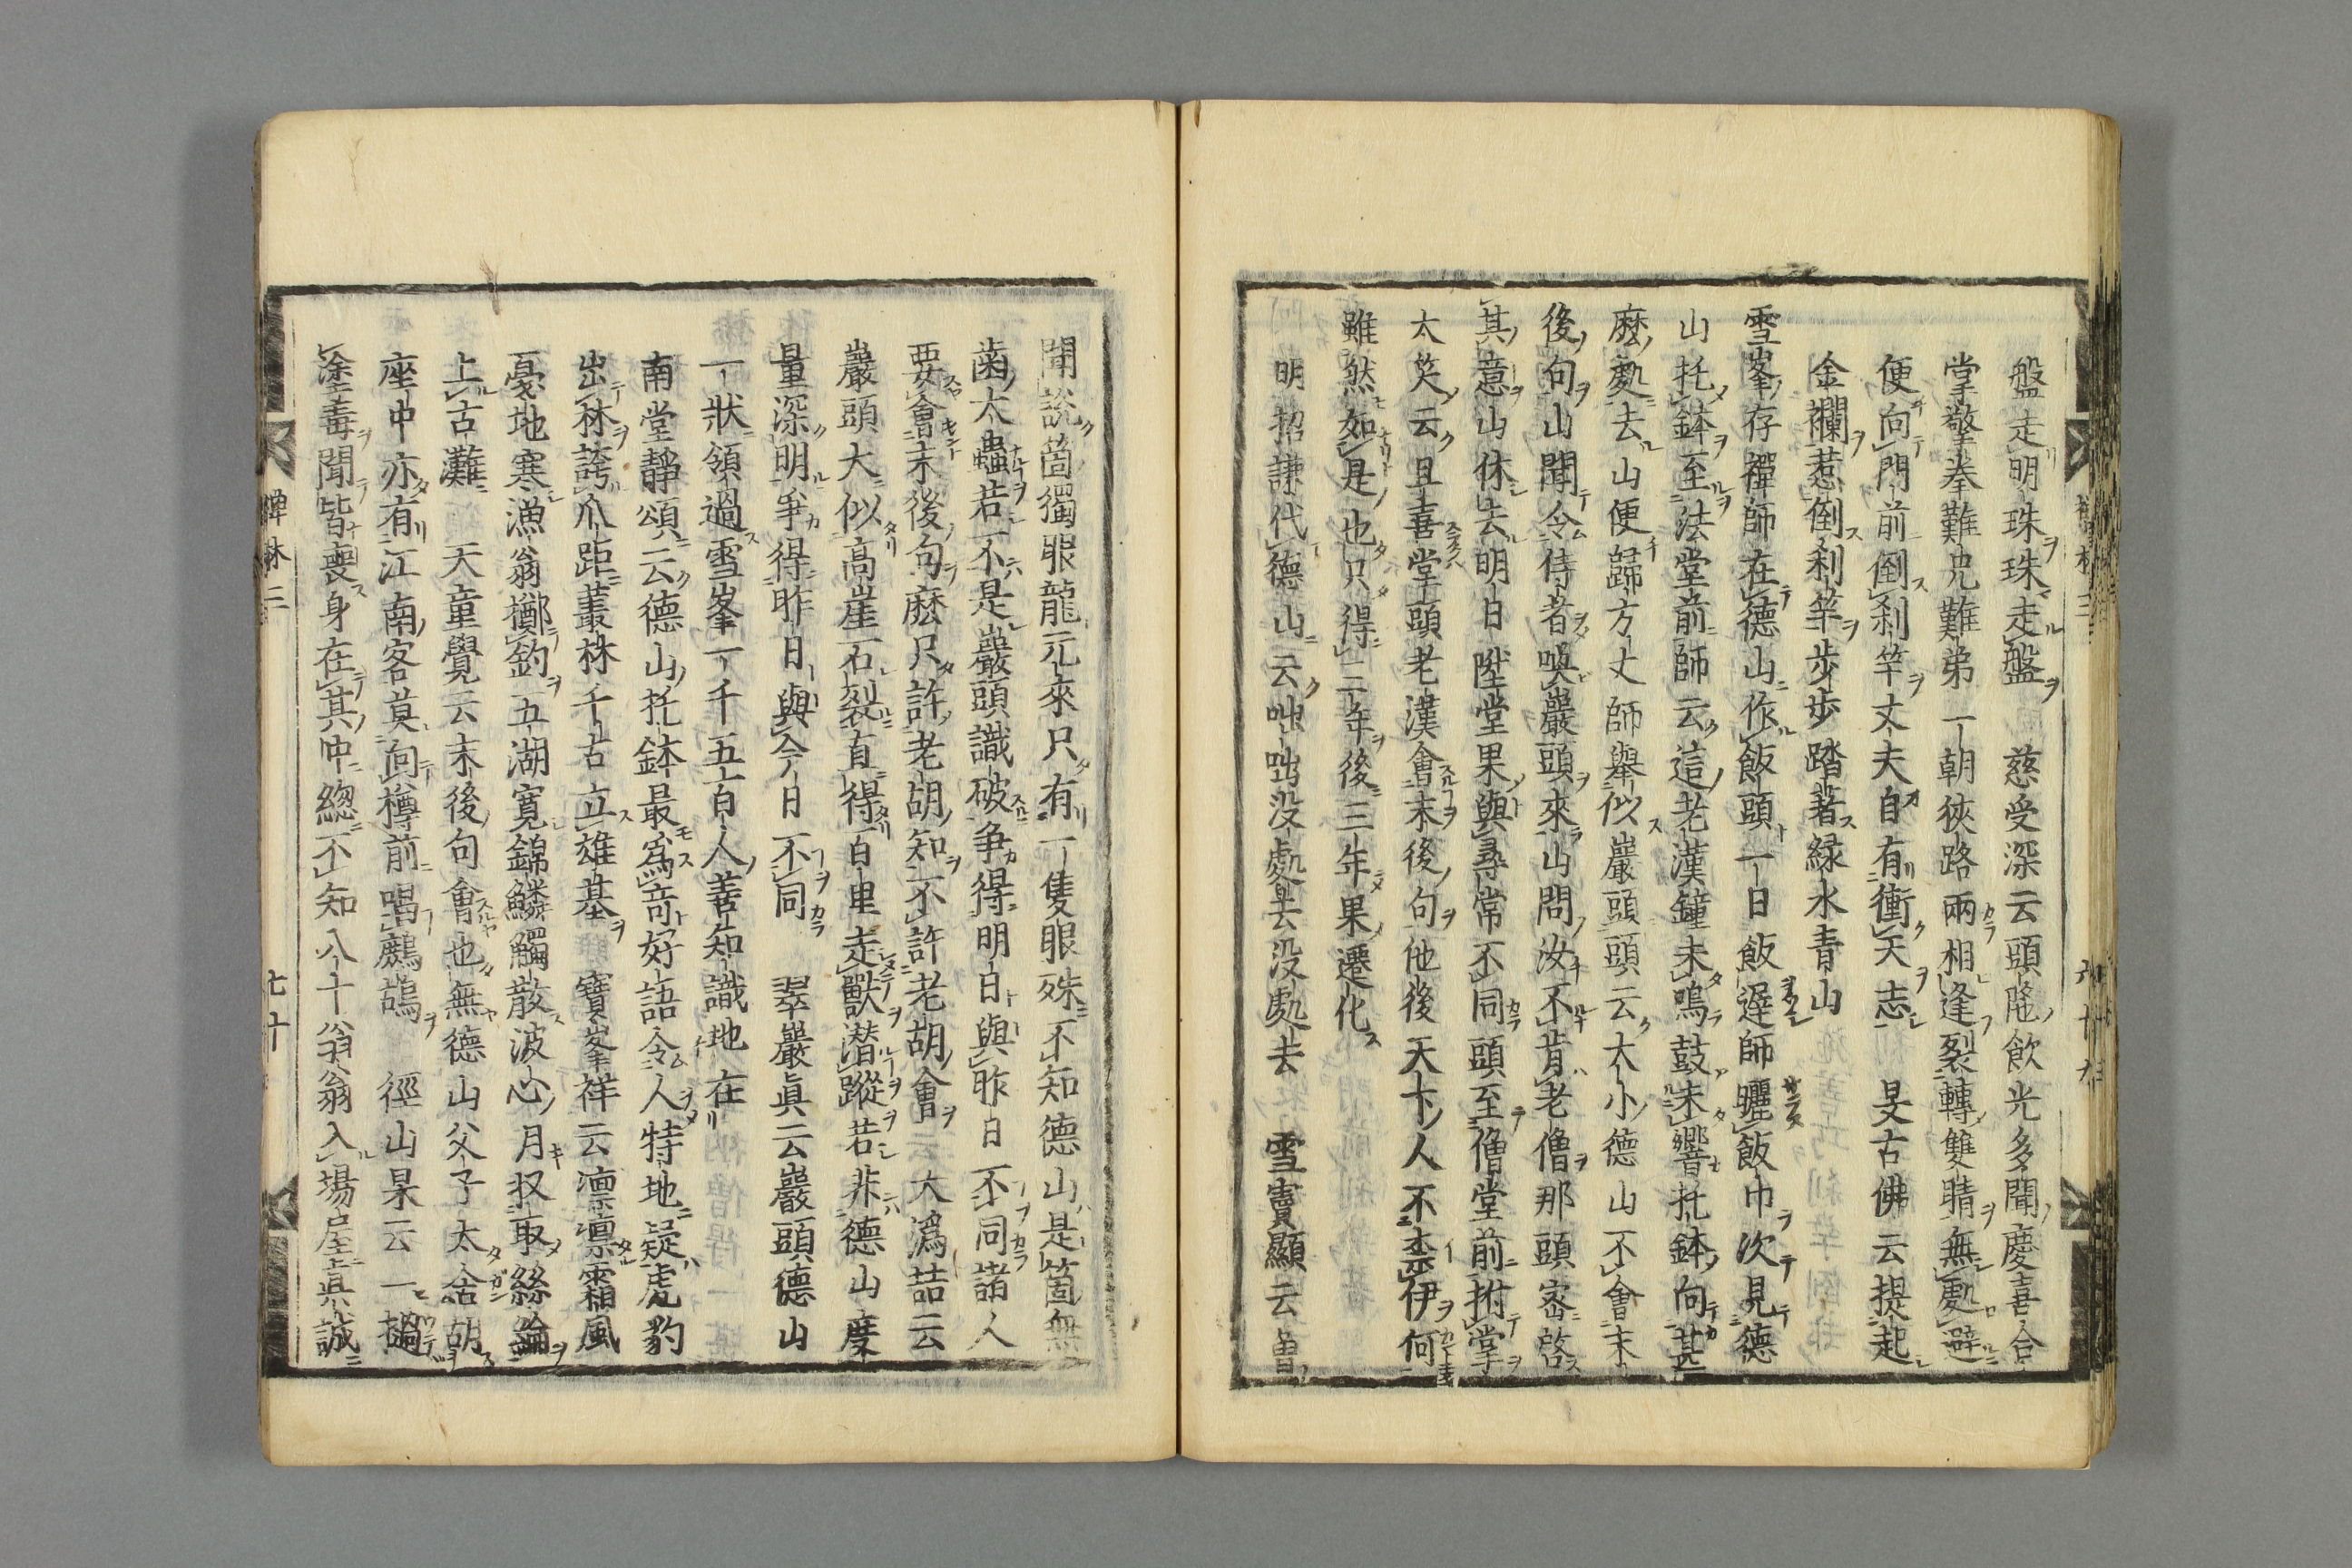 盤走明珠珠走盤　慈受深云頭陀飲光多聞慶喜合
掌擎拳難兄難弟一朝狹路兩相逢裂轉雙睛無處避
便向門前倒刹竿丈夫自有衝天志　旻古佛云提起
金襴惹倒刹竿步步踏著緑水青山
雪峯存禪師在德山作飯頭一日飯遲師曬飯巾次見德
山托鉢至法堂前師云這老漢鐘未鳴鼓未響托鉢向甚
麽處去山便歸方丈師舉似巖頭頭云大小德山不會末
後句山聞令侍者喚巖頭來山問汝不肯老僧那頭密啓
其意山休去明日陞堂果與尋常不同頭至僧堂前拊掌
大笑云且喜堂頭老漢會末後句他後天下人不柰伊何
雖然如是也只得三年後三年果遷化
明招謙代德山云咄咄没處去没處去　雪竇顯云曽
聞說箇獨眼龍元來只有一隻眼殊不知德山是箇無
齒大蟲若不是巖頭識破爭得明日與昨日不同諸人
要會末後句麽只許老胡知不許老胡會　大潙喆云
巖頭大似高崖石裂直得百里走獸潜蹤若非德山度
量深明爭得昨日與今日不同　翠巖眞云巖頭德山
一狀領過雪峯一千五百人善知識地在
南堂靜頌云德山托鉢最爲奇好語令人特地疑虎豹
出林誇爪距叢林千古立雄基　寶峯祥云凛凛霜風
憂地寒漁翁擲釣五湖寛錦鱗觸散波心月收取絲綸
上古灘　天童覺云末後句會也無德山父子太含胡
座中亦有江南客莫向樽前唱鷓鴣　徑山杲云一撾
塗毒聞皆喪身在其中總不知八十翁翁入場屋眞誠
禪林二
七十